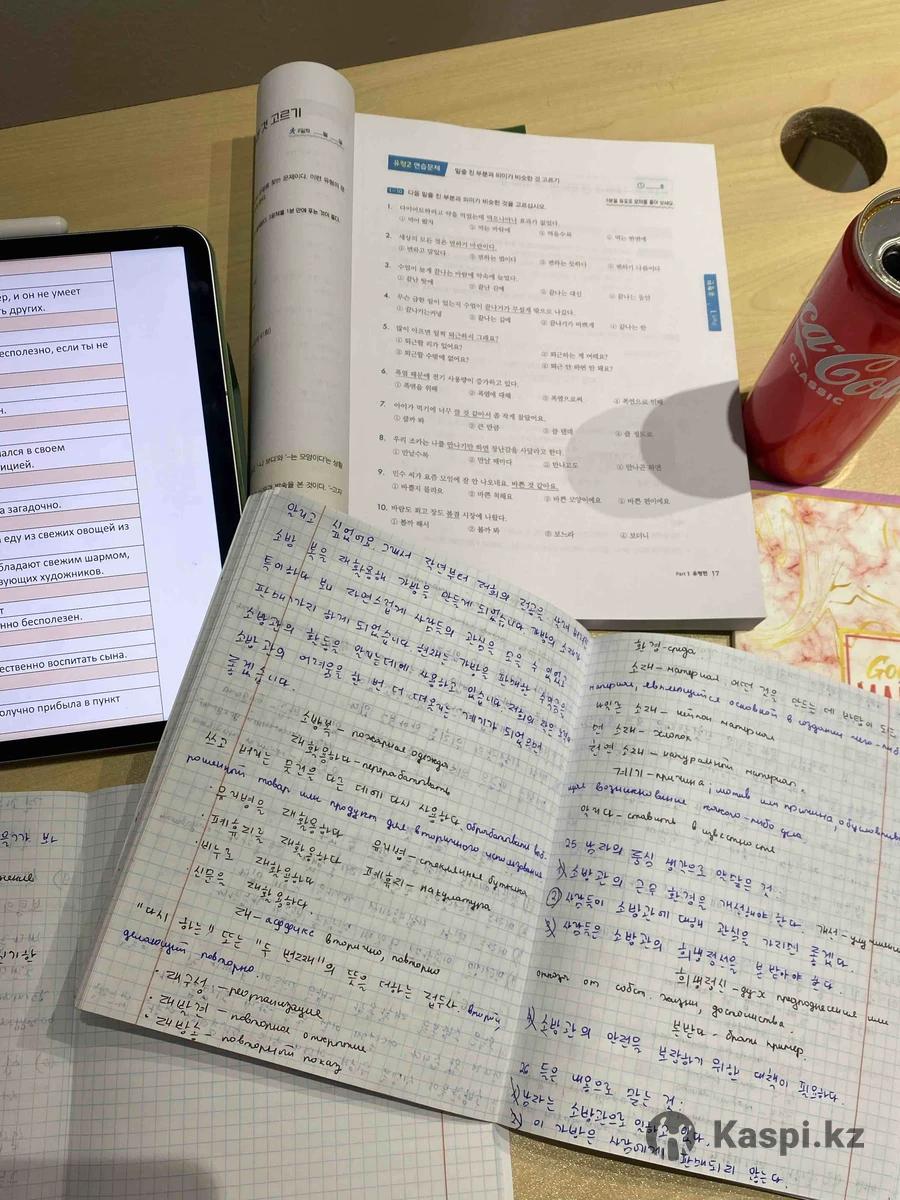 것 고르기
ер, и он не умеет
ть других.
есполезно, если ты не
н.
ался в своем
ицией.
а загадочно.
а еду из свежих овощей из
бладают свежим шармом,
вующих художников.
т
нно бесполезен.
ественно воспитать сына.
олучно прибыла в пункт
유형2 연습문제 밑줄 친 부분과 의미가 비슷한 것 고르기
1~10 다음 밑줄 친 부분과 의미가 비슷한 것을 고르십시오.
1. 다이어트하려고 약을 먹었는데 먹으나마나 효과가 없었다.
① 먹어 봤자 ② 먹는 바람에 ③ 먹을수록 ④ 먹는 한편에
2. 세상의 모든 것은 변하기 마련이다.
① 변하고 말았다 ② 변하는 법이다 ③ 변하는 듯하다 ④ 변하기 나름이다
3. 수업이 늦게 끝나는 바람에 약속에 늦었다.
① 끝난 탓에 ② 끝난 김에 ③ 끝나는 대신 ④ 끝나는 동안
4. 무슨 급한 일이 있는지 수업이 끝나기가 무섭게 밖으로 나갔다.
① 끝나기는커녕 ② 끝나는 김에 ③ 끝나기가 바쁘게 ④ 끝나는 한
5. 많이 아프면 일찍 퇴근하지 그래요?
① 퇴근할 리가 있어요? ② 퇴근하는 게 어때요?
③ 퇴근할 수밖에 없어요? ④ 퇴근 안 하면 안 돼요?
6. 폭염 때문에 전기 사용량이 증가하고 있다.
① 폭염을 위해 ② 폭염에 대해 ③ 폭염으로써 ④ 폭염으로 인해
7. 아이가 먹기에 너무 클 것 같아서 좀 작게 잘랐어요.
① 클까 봐 ② 큰 만큼 ③ 클 텐데 ④ 클 정도로
8. 우리 조카는 나를 만나기만 하면 장난감을 사달라고 한다.
① 만날수록 ② 만날 때마다 ③ 만나고도 ④ 만나곤 하면
9. 민수 씨가 요즘 모임에 잘 안 나오네요. 바쁜 것 같아요.
① 바쁠지 몰라요 ② 바쁜 척해요 ③ 바쁜 모양이에요 ④ 바쁜 편이에요
10. 바람도 쐬고 장도 볼겸 시장에 나왔다.
① 볼까 해서 ② 볼까 봐 ③ 보느라 ④ 보더니
Part 1 유형편 17
Part 1 유형편
Coca-Cola
CLASSIC
알리고 싶었어요. 그래서 작년부터 저희의 전공을
소방 복을 재활용해 가방을 만들게 되었습니다 가방의 소재가
특이하다 보니 자연스럽게 사람들의 관심을 모을 수 있었고
판매까지 하게 되었습니다 현재는 가방을 판매한 수익금을
소방관의 활동을 알리는데에 사용하고 있습니다 저희의 작은
소방관의 어려움을 한 번 더 떠올리는 계기가 되었으면
좋겠습니다.
소방복 - пожарная одежда
재활용하다 - перерабатывать
쓰고 버리는 물건을 다른 데에 다시 사용하다
товар или продукт для вторичного использования
· 유리병을 재활용하다 유리병 - стеклянная бутылка
· 폐휴지를 재활용하다 폐휴지 - макулатура
· 비누로 재활용하다
· 신문을 재활용하다.
재 - аффикс вторично, повторно
"다시 하는" 또는 "두 번째"의 뜻을 더하는 접두사.
делающий повторно.
· 재구성 - реорганизация
· 재발견 - повторное открытие
· 재방송 - повторный показ
환경 - среда
소재 - материал 어떤 것을 만드는 데 바탕이 되는
материал, являющийся основной в создании чего-либо
나일론 소재 - нейлон материал
면 소재 - хлопок
천연 소재 - натуральный материал.
계기 - причина; мотив или причина,
для возникновение какого-либо дела
알리다 - ставить в известность
25 남자의 중심 생각으로 알맞은 것.
소방관의 근무 환경을 개선해야 한다. 개선 - улучшение
② 사람들이 소방관에 대해 관심을 가지면 좋겠다.
사람들은 소방관의 희생정신을 본받아야 한다.
희생정신 - дух
от собст. жизни, достоинства.
본받다 - брать пример.
소방관의 안전을 보장하기 위한 대책이 필요하다.
26 들은 내용으로 맞는 것.
남자는 소방관으로 일하고 있다.
이 가방은 사람들에게 판매되지 않는다.
Kaspi.kz